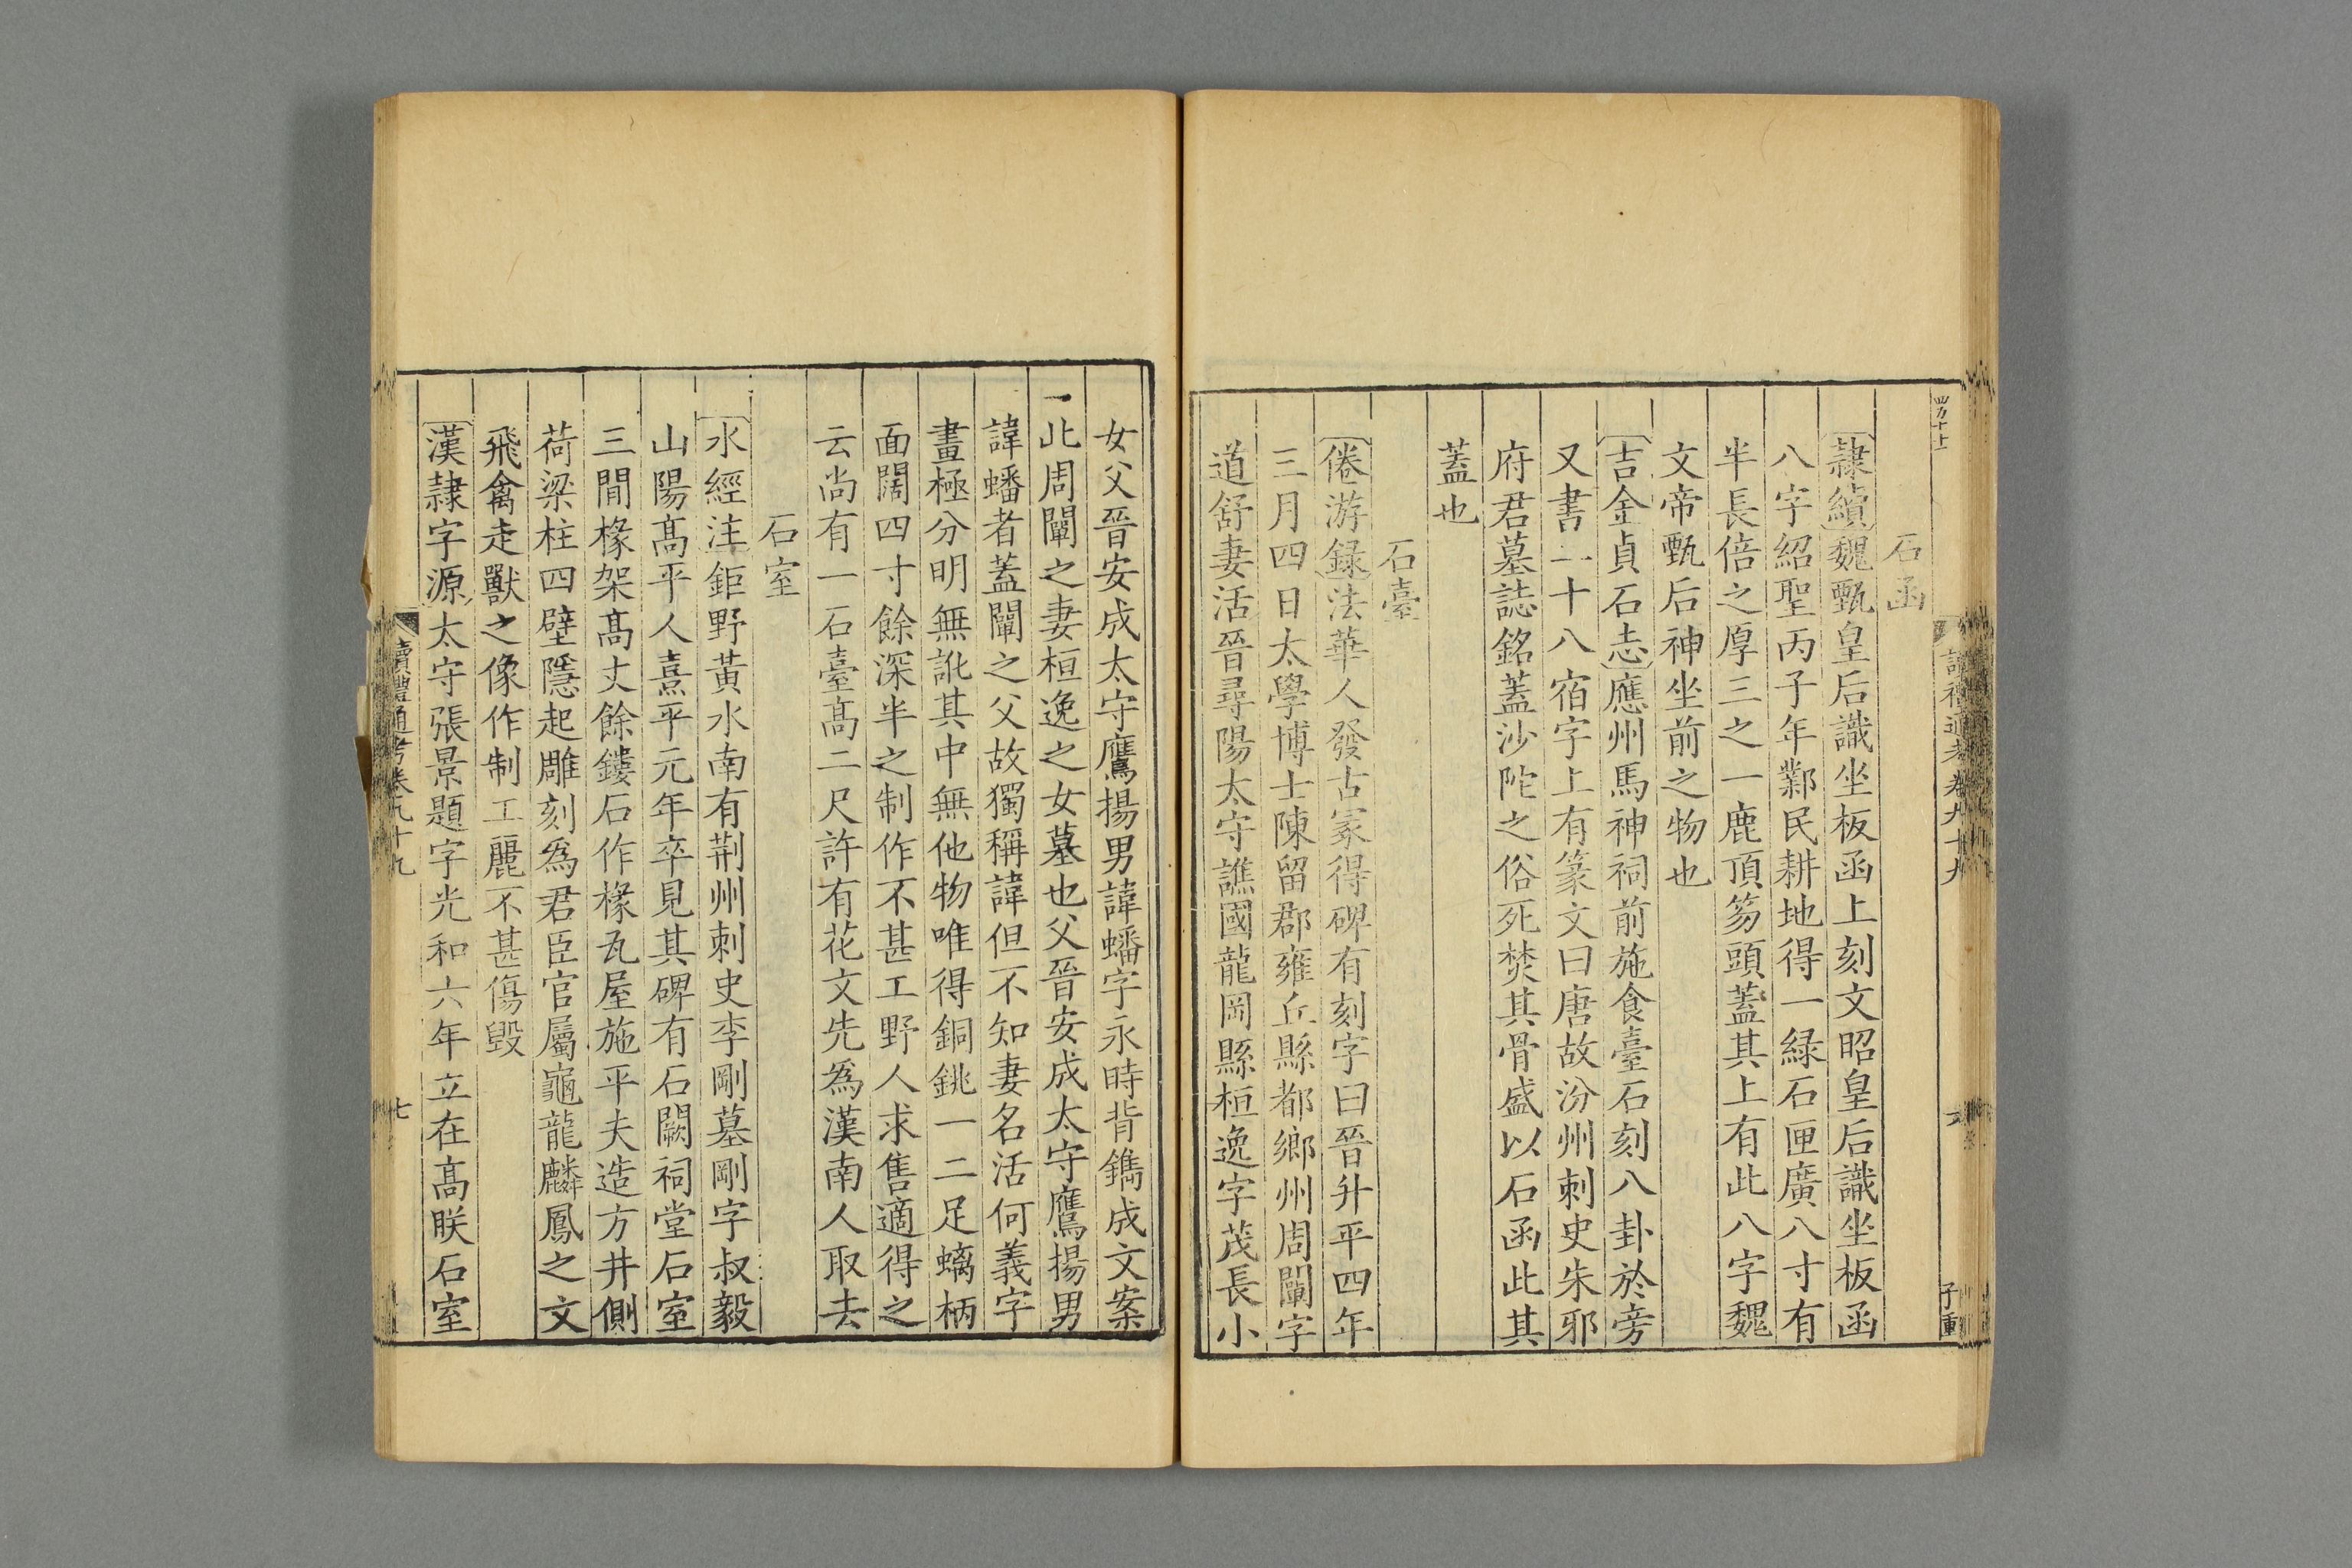 石函
隷續魏甄皇后識坐板函上刻文昭皇后識坐板函
八字紹聖丙子年鄴民耕地得一緑石匣廣八寸有
半長倍之厚三之一鹿頂笏頭蓋其上有此八字魏
文帝甄后神坐前之物也
吉金貞石志應州馬神祠前施食臺石刻八卦於旁
又書二十八宿字上有篆文曰唐故汾州刺史朱邪
府君墓誌銘蓋沙陀之俗死焚其骨盛以石函此其
蓋也
石臺
倦游録法華人發古冢得碑有刻字曰晉升平四年
三月四日太學博士陳留郡雍丘縣都鄉州周闡字
道舒妻活晉尋陽太守譙國龍岡縣桓逸字茂長小
女父晉安成太守鷹揚男諱蟠字永時背鐫成文案
一此周闡之妻桓逸之女墓也父晉安成太守鷹揚男
諱蟠者蓋闡之父故獨稱諱但不知妻名活何義字
畫極分明無訛其中無他物唯得銅銚一二足螭柄
面闊四寸餘深半之制作不甚工野人求售適得之
云尚有一石臺髙二尺許有花文先爲漢南人取去
石室
水經注鉅野黃水南有荆州刺史李剛墓剛字叔毅
山陽髙平人熹平元年卒見其碑有石闕祠堂石室
三間椽架髙丈餘鏤石作椽瓦屋施平夫造方井側
荷梁柱四壁隱起雕刻爲君臣官屬龜龍麟鳳之文
飛禽走獸之像作制工麗不甚傷毀
漢隷字源太守張景題字光和六年立在髙朕石室
讀禮通考卷九十九
七
讀禮通考卷九十九
子重